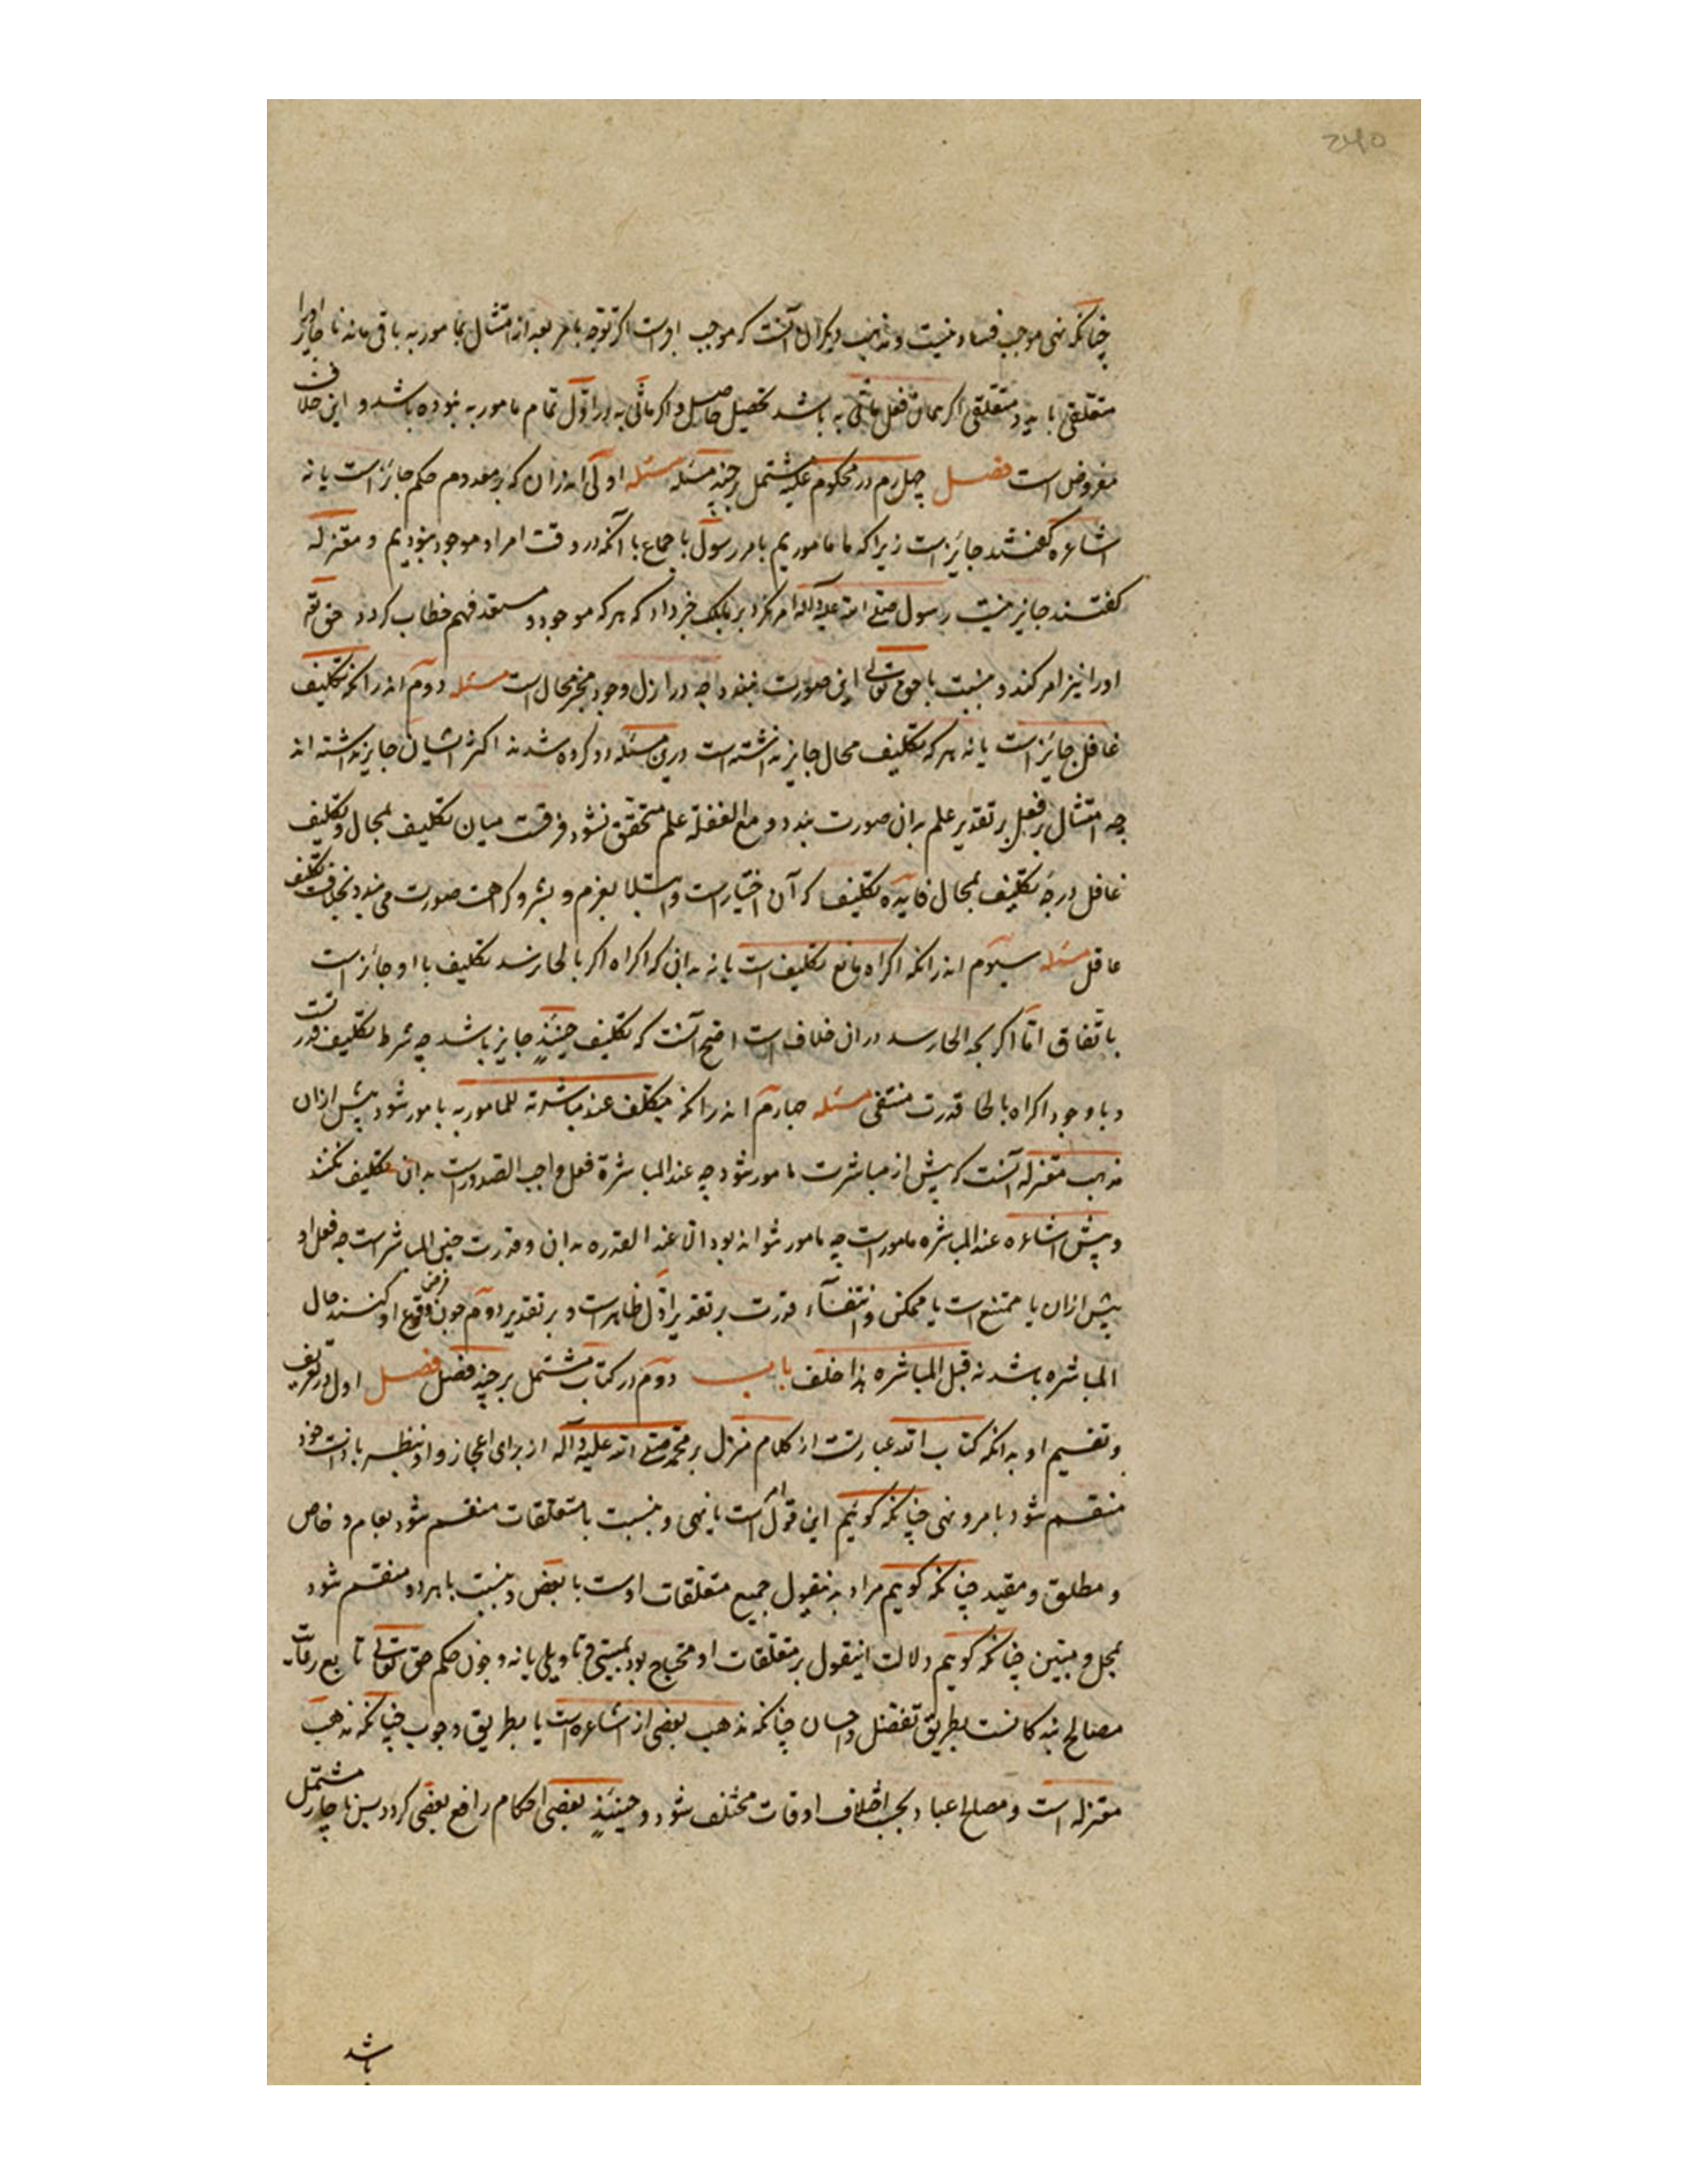 ۲۴۵
چنانکه نهی موجب فساد نیست و مذهب دیگران آنست که موجب اوست اگر توجه بامر بعد از امتثال بمامور به باقی ماند ناچار اورا
متعلقی باید و متعلقی اگر همان فعل ماتی به باشد تحصیل حاصل و اگر ماتی به در اول تمام مامور به نبوده باشد و این خلاف
مفروض است فصل چهارم در محکوم علیه مشتمل بر چند مسئله مسئله اولی اندران که بر معدوم حکم جائز است یا نه
اشاعره گفتند جائز است زیرا که ما ماموریم بامر رسول باجماع با آنکه در وقت امر او موجود نبودیم و معتزله
گفتند جایز نیست رسول صلی الله علیه وآله امر نکرد بر بلکه خبر داد که هر که موجود و مستعد فهم خطاب گردد حق تع
او را نیز امر کند و نسبت با حق تعالی این صورت نبندد چه در ازل وجود مخبر محال است مسئله دوم اندرانکه تکلیف
غافل جائز است یا نه هر که تکلیف محال جایز نداشته است درین مسئله دو گروه شدند اکثر ایشان جایز نداشته اند
چه امتثال بر فعل بر تقدیر علم بدان صورت بندد و مع الغفلة علم متحقق نشود و فرقست میان تکلیف بمحال و تکلیف
غافل درچه تکلیف بمحال فایده تکلیف که آن اختیار است و ابتلا بعزم و بشر و کراهت صورت می بندد بخلاف تکلیف
غافل مسئله سیوم اندرانکه اکراه مانع تکلیف است یا نه بدانکه اکراه اگر بالجا نرسد تکلیف با او جائز است
باتفاق اما اگر بحد الجا رسد در ان خلاف است اصح آنست که تکلیف حینئذ جایز نباشد چه شرط تکلیف قدرتست
و با وجود اکراه بالجا قدرت منتفی مسئله چهارم اندرانکه مکلف عند مباشرته للمامور به مامور شود یا پیش ازان
مذهب معتزله آنست که پیش از مباشرت مامور شود چه عند المباشرة فعل واجب الصدور است بدان تکلیف نکنند
و پیش اشاعره عند المباشره مامور است چه مامور نتواند بود الا عند القدره بدان و قدرت حین المباشر است چه فعل او
پیش ازان یا ممتنع است یا ممکن و انتفآء قدرت بر تقدیر اول ظاهر است و بر تقدیر دوم چون فرض وقوع او کنند حال
المباشره باشد نه قبل المباشره هذا خلف باب دوم در کتاب مشتمل بر چند فصل فصل اول در تعریف
و تقسیم او بدانکه کتاب الله عبارتست از کلام منزل بر محمد صلی الله علیه وآله از برای اعجاز و او بنظر با ذات خود
منقسم شود بامر و نهی چنانکه گوئیم این قول امر است یا نهی و نسبت با متعلقات منقسم شود بعام و خاص
و مطلق و مقید چنانکه گوییم مراد بدینقول جمیع متعلقات اوست یا بعض و نسبت با هر دو منقسم شود
بمجمل و مبین چنانکه گوییم دلالت اینقول بر متعلقات او محتاج بود بمبینی و تاویلی یا نه و چون حکم حق تعالی تابع رعایت
مصالح بندگانست بطریق تفضل و احسان چنانکه مذهب بعضی از اشاعره است یا بطریق وجوب چنانکه مذهب
معتزله است و مصالح عباد بحسب اختلاف اوقات مختلف شود و حینئذ بعضی احکام رافع بعضی گردد پس ناچار مشتمل
باشد